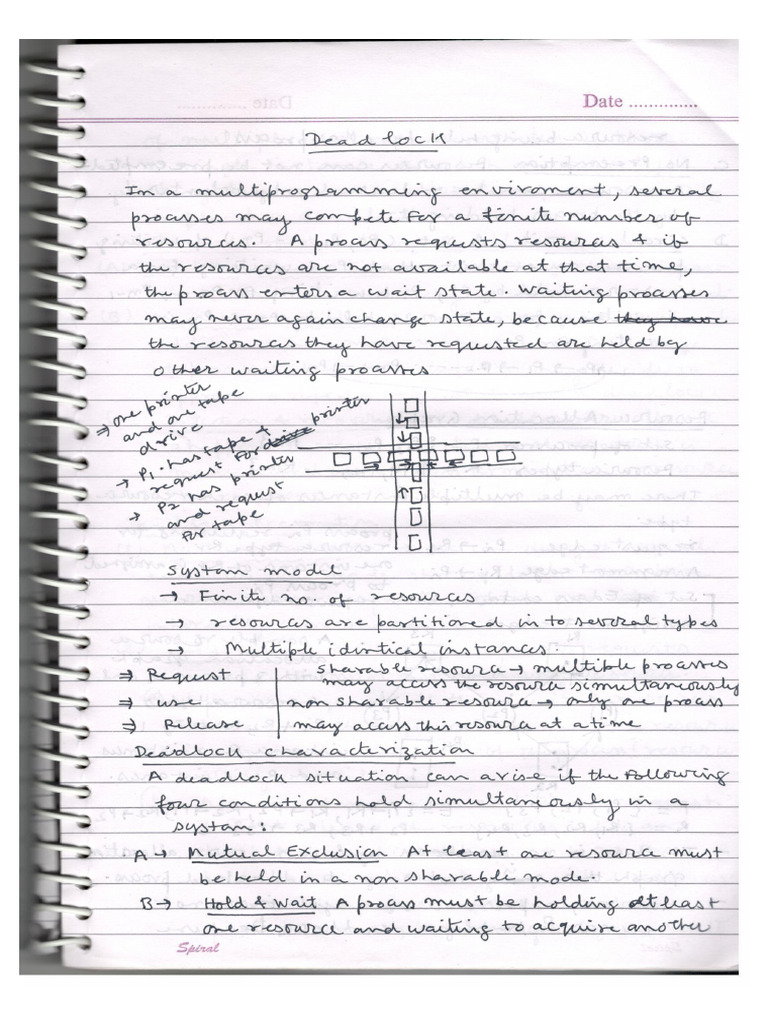 Date ..............
Deadlock
In a multiprogramming enviroment, several
processes may compete for a finite number of
resources. A process requests resources & if
the resources are not available at that time,
the process enters a wait state. Waiting processes
may never again change state, because they have
the resources they have requested are held by
other waiting processes
⇒ one printer
and one tape
drive
→ P1 has tape &
request for drive printer
→ P2 has printer
and request
for tape
System model
→ Finite no. of resources
→ resources are partitioned in to several types
→ Multiple idintical instances.
⇒ Request
⇒ use
⇒ Release
Sharable resource → multiple processes
may access the resource simultaneously
non sharable resource → only one process
may access this resource at a time
Deadlock characterization
A deadlock situation can arise if the following
four conditions hold simultaneously in a
system:
A → Mutual Exclusion At least one resource must
be held in a non sharable mode.
B → Hold & Wait A process must be holding atleast
one resource and waiting to acquire another
Spiral